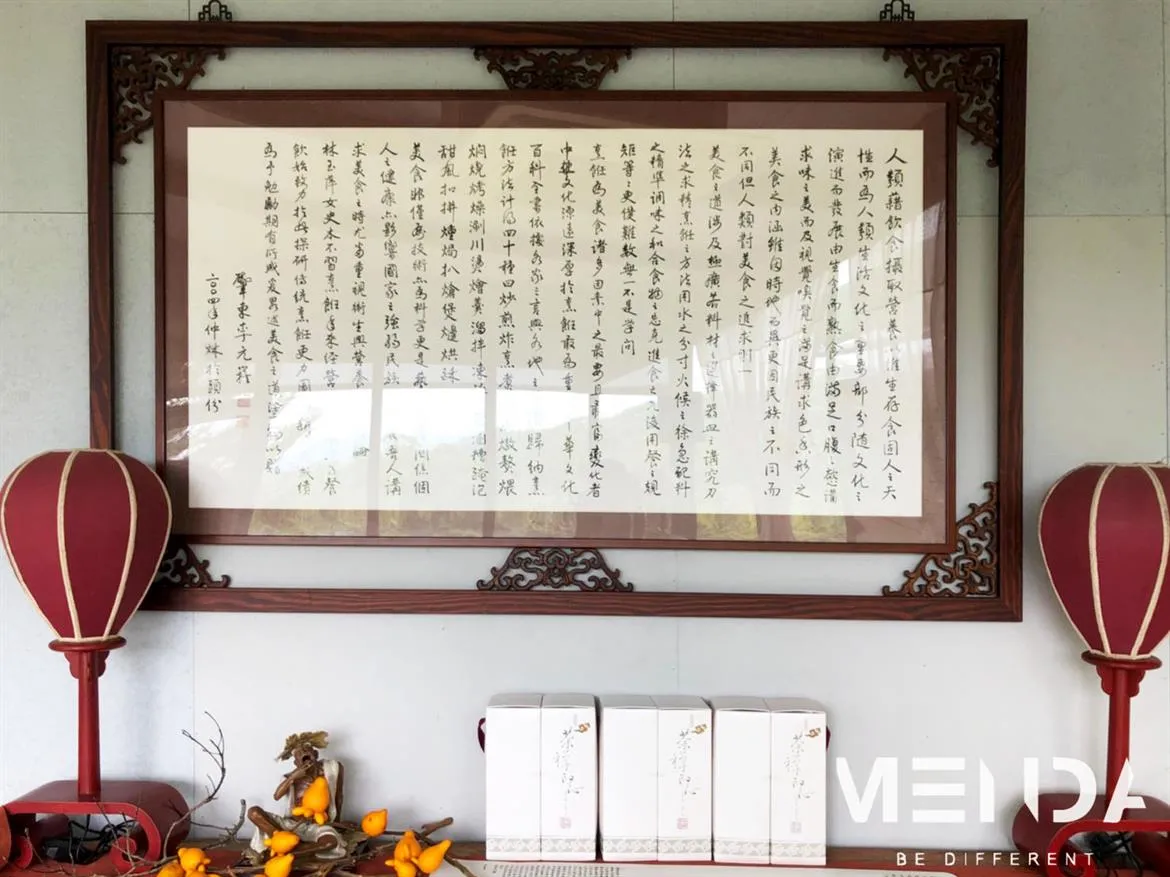 人類藉飲食攝取營養維生存食固人之天
性而為人類生活文化之重要部分隨文化之
演進而發展由生食而熟食由滿足口腹之慾講
求味之美而及視覺嗅覺之滿足講求色香形之
美食之內涵雖因時地而異更因民族之不同而
不同但人類對美食之追求則一
美食之道涉及極廣若料材之選擇器皿之講究刀
法之求精烹飪之方法用水之分寸火候之徐急配料
之精準調味之和合食物之忌克進食之先後用餐之規
矩等等更僕難數無一不是学问
烹飪為美食諸多因素中之最要且最富變化者
中華文化源遠深厚於烹飪最為重 華文化
百科全書依據各家之言與各地之 歸納烹
飪方法計得四十種曰炒煎炸烹煮 燉熬煨
焖燒烤燥涮川燙燴 溜拌凍 滷糟醃泡
甜風扣拼燻焗扒 煲爐烘酥
美食非僅為技術亦為科学更是藝 關係個
人之健康亦影響國家之強弱民族 吾人講
求美食之時尤當重視衛生與營養
林玉萍女史本不習烹飪年來經營 餐
飲始致力於 探研傳統烹飪更力圖 成績
為予勉勵期有所成爰畧述美食之道塗鴉以貽
肇東李元簇
二〇〇四年仲秋於頭份
茶禪
茶禪
茶禪
MENDA
BE DIFFERENT